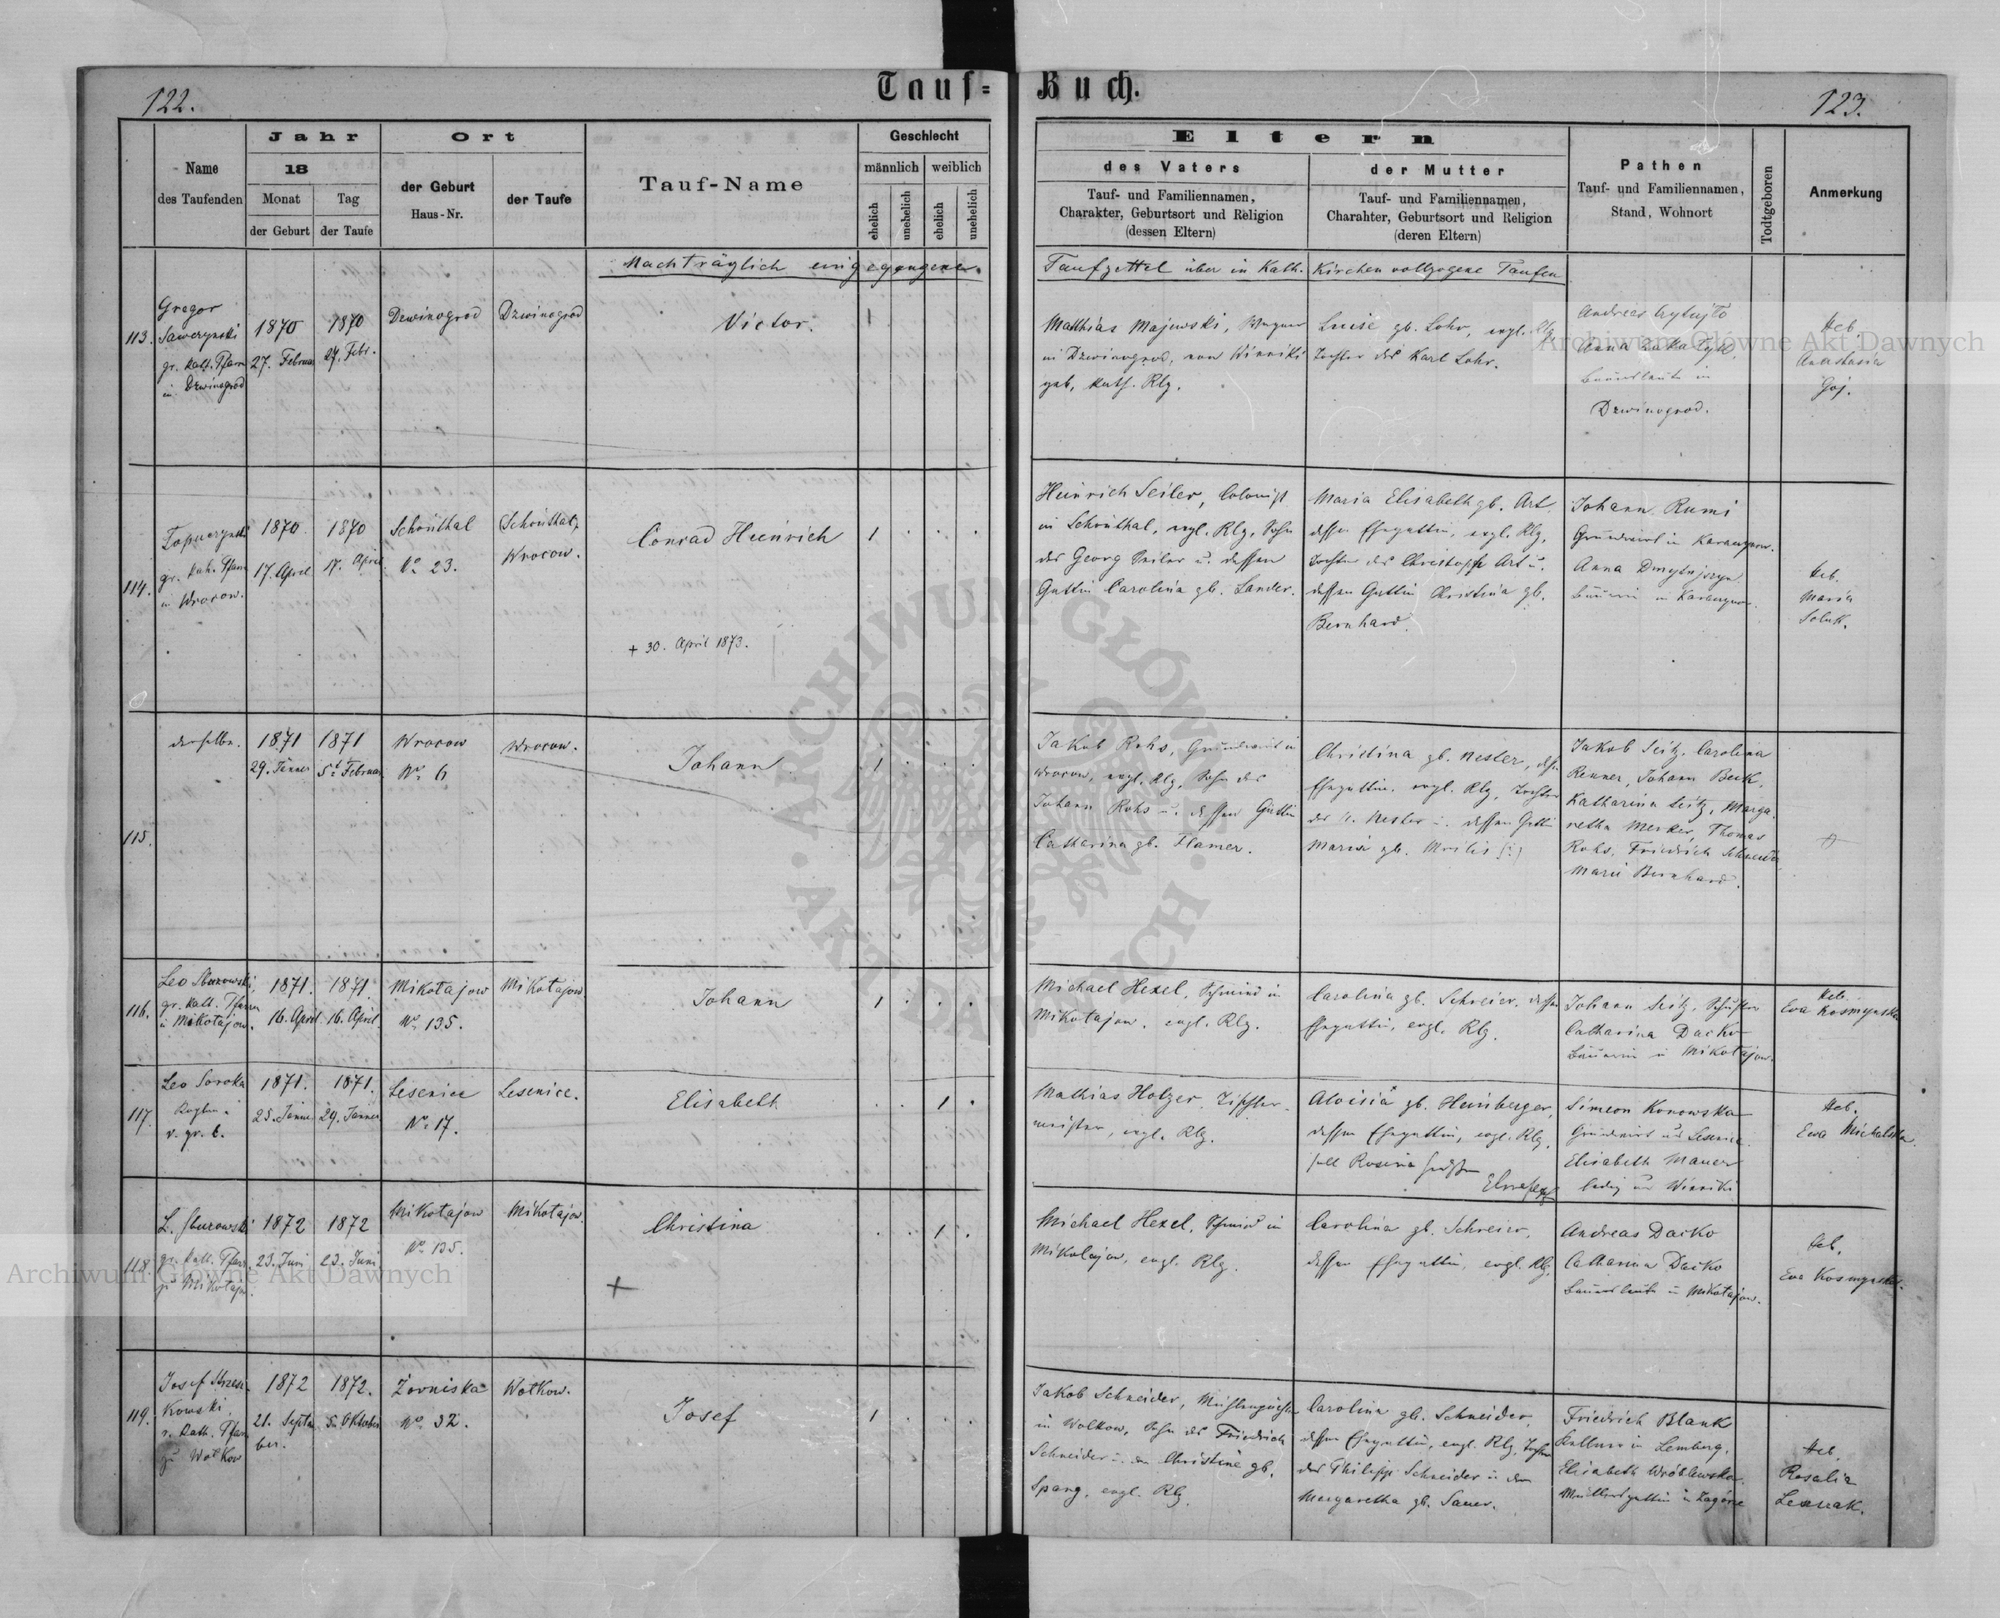 122.
Tauf-
Name
des Taufenden
Jahr
18
Monat
der Geburt
Tag
der Taufe
Ort
der Geburt
Haus-Nr.
der Taufe
Tauf-Name
Geschlecht
männlich
weiblich
ehelich
unehelich
ehelich
unehelich
Nachträglich eingegangene
113.
Gregor
gr. kath. Pfarr
in Dzwinogrod
1870
27. Februar
1870
27. Febr.
Dzwinogrod
Dzwinogrod
Victor.
1
114.
gr. kath. Pfarr
in Wrocow.
1870
17. April
1870
17. April
Schönthal
No 23.
Schönthal
Wrocow.
Conrad Heinrich
+ 30. April 1873.
1
115.
derselbe.
1871
29. Jänner
1871
5t Februar
Wrocow
No 6
Wrocow.
Johann
1
116.
Leo
gr. kath. Pfarrer
in Mikołajow.
1871.
16. April
1871
16. April.
Mikołajow
No 135.
Mikołajow
Johann
1
117.
Leo Soroka
v. gr. c.
1871.
25. Jänner
1871.
29. Jänner
Lesenice
No 17.
Lesenice.
Elisabeth
1
118.
gr. kath. Pfarr
zu Mikołajow
1872
23. Juni
1872
23. Juni
Mikołajow
No 135.
Mikołajow.
Christina
+
1
119.
Josef
kowski,
r. kath. Pfarr
zu Wołkow
1872
21. Septem
ber.
1872.
5. Oktober
Zovniska
No 32.
Wołkow.
Josef
1
Buch.
123.
Eltern
des Vaters
Tauf- und Familiennamen,
Charakter, Geburtsort und Religion
(dessen Eltern)
der Mutter
Tauf- und Familiennamen,
Charahter, Geburtsort und Religion
(deren Eltern)
Pathen
Tauf- und Familiennamen,
Stand, Wohnort
Todtgeboren
Anmerkung
Taufzettel über in Kath. Kirchen vollzogene Taufen
Matthias Majewski, Wagner
in Dzwinogrod, von Winniki
geb, kath. Rlg.
Luise gb. Lohr, evgl. Rlg
Tochter des Karl Lohr.
Andreas
Anna
Bauersleute in
Dzwinogrod.
Heb.
Anastasia
Goj.
Heinrich Seiler, Colonist
in Schönthal, evgl. Rlg, Sohn
des Georg Seiler u. dessen
Gattin Carolina gb. Lander.
Maria Elisabeth gb. Art
dessen Ehegattin, evgl. Rlg,
Tochter des Christoph Art u.
dessen Gattin Christina gb.
Bernhard.
Johann Rumi
Grundwirt in
Anna
Bäuerin in
Heb.
Maria
Jakob Rohs, Grundwirt in
Wrocow, evgl. Rlg, Sohn des
Johann Rohs u. dessen Gattin
Catharina gb. Flamer.
Christina gb. Nester, dessen
Ehegattin, evgl. Rlg, Tochter
des Nester u. dessen Gattin
Maria gb.
Jakob Seitz, Carolina
Renner, Johann Beck,
Katharina Seitz, Marga-
retha Merker, Thomas
Rohs, Friedrich Schneider
Marie Bernhard.
Michael Hexel, Schmied in
Mikołajow, evgl. Rlg.
Carolina gb. Schreier, dessen
Ehegattin, evgl. Rlg.
Johann Seitz, Schuster
Catharina Dacko
Bäuerin in Mikołajow.
Heb.
Eva Kosmynska
Mathias Holzer, Tischler-
meister, evgl. Rlg.
Aloisia gb. Heinberger,
dessen Ehegattin, evgl. Rlg.
soll Rosina heißen
Simeon Konowska
Grundwirt aus Lesenice.
Elisabeth Mauer
ledig aus Winniki
Heb.
Eva Michalska.
Michael Hexel, Schmied in
Mikolajow, evgl. Rlg.
Carolina gb. Schreier,
dessen Ehegattin, evgl. Rlg.
Andreas Dacko
Catharina Dacko
Bauersleute in Mikołajow.
Heb.
Eva Kosmynska.
Jakob Schneider, Mühlenpächter
in Wolkow, Sohn des Friedrich
Schneider u. der Christine gb.
Spang, evgl. Rlg.
Carolina gb. Schneider,
dessen Ehegattin, evgl. Rlg, Tochter
des Philipp Schneider u der
Margaretha gb. Sauer.
Friedrich Blank
Kellner in Lemberg.
Elisabeth Wróblewska
Müllersgattin in Zagórze
Heb.
Rosalia
Archiwum Główne Akt Dawnych
Archiwum Główne Akt Dawnych
ARCHIWUM GŁÓWNE AKT DAWNYCH